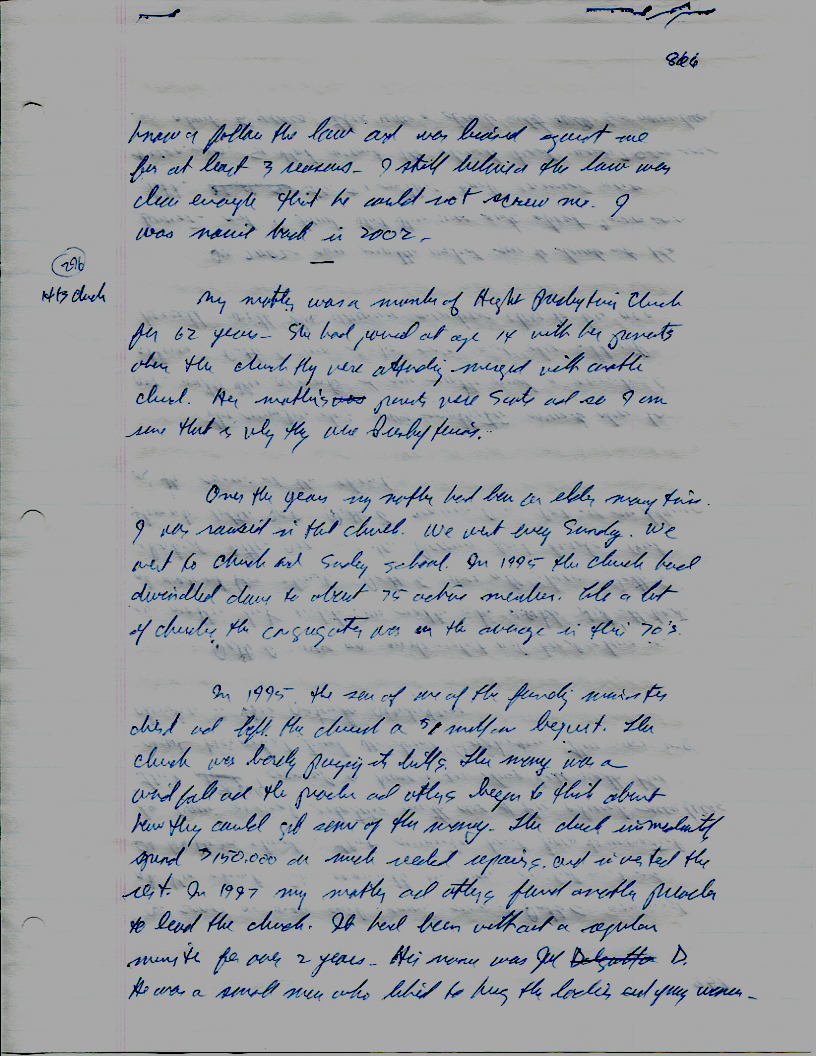 866
know or follow the law and was biased against me
for at least 3 reasons - I still believed the law was
clear enough that he could not screw me. I
was naive back in 2002 -
296
Hts Church
My mother was a member of Height Presbyterian Church
for 62 years - She had joined at age 14 with her parents
when the church they were attending merged with another
church. Her mother's was parents were Scots and so I am
sure that is why they were Presbyterians.
Over the years my mother had been an elder many times.
I was raised in that church. We went every Sunday. We
went to church and Sunday school. In 1995 the church had
dwindled down to about 75 active members. Like a lot
of churches the congregation was on the average in their 70's.
In 1995 the son of one of the founding ministers
died and left the church a $1 million bequest. The
church was barely paying its bills. The money was a
windfall and the preacher and others began to think about
how they could get some of the money. The church immediately
spend $150,000 on much needed repairs and invested the
rest. In 1997 my mother and others found another preacher
to lead the church. It had been without a regular
minister for over 2 years - His name was Delgatto D.
He was a small man who liked to hug the ladies and young women -